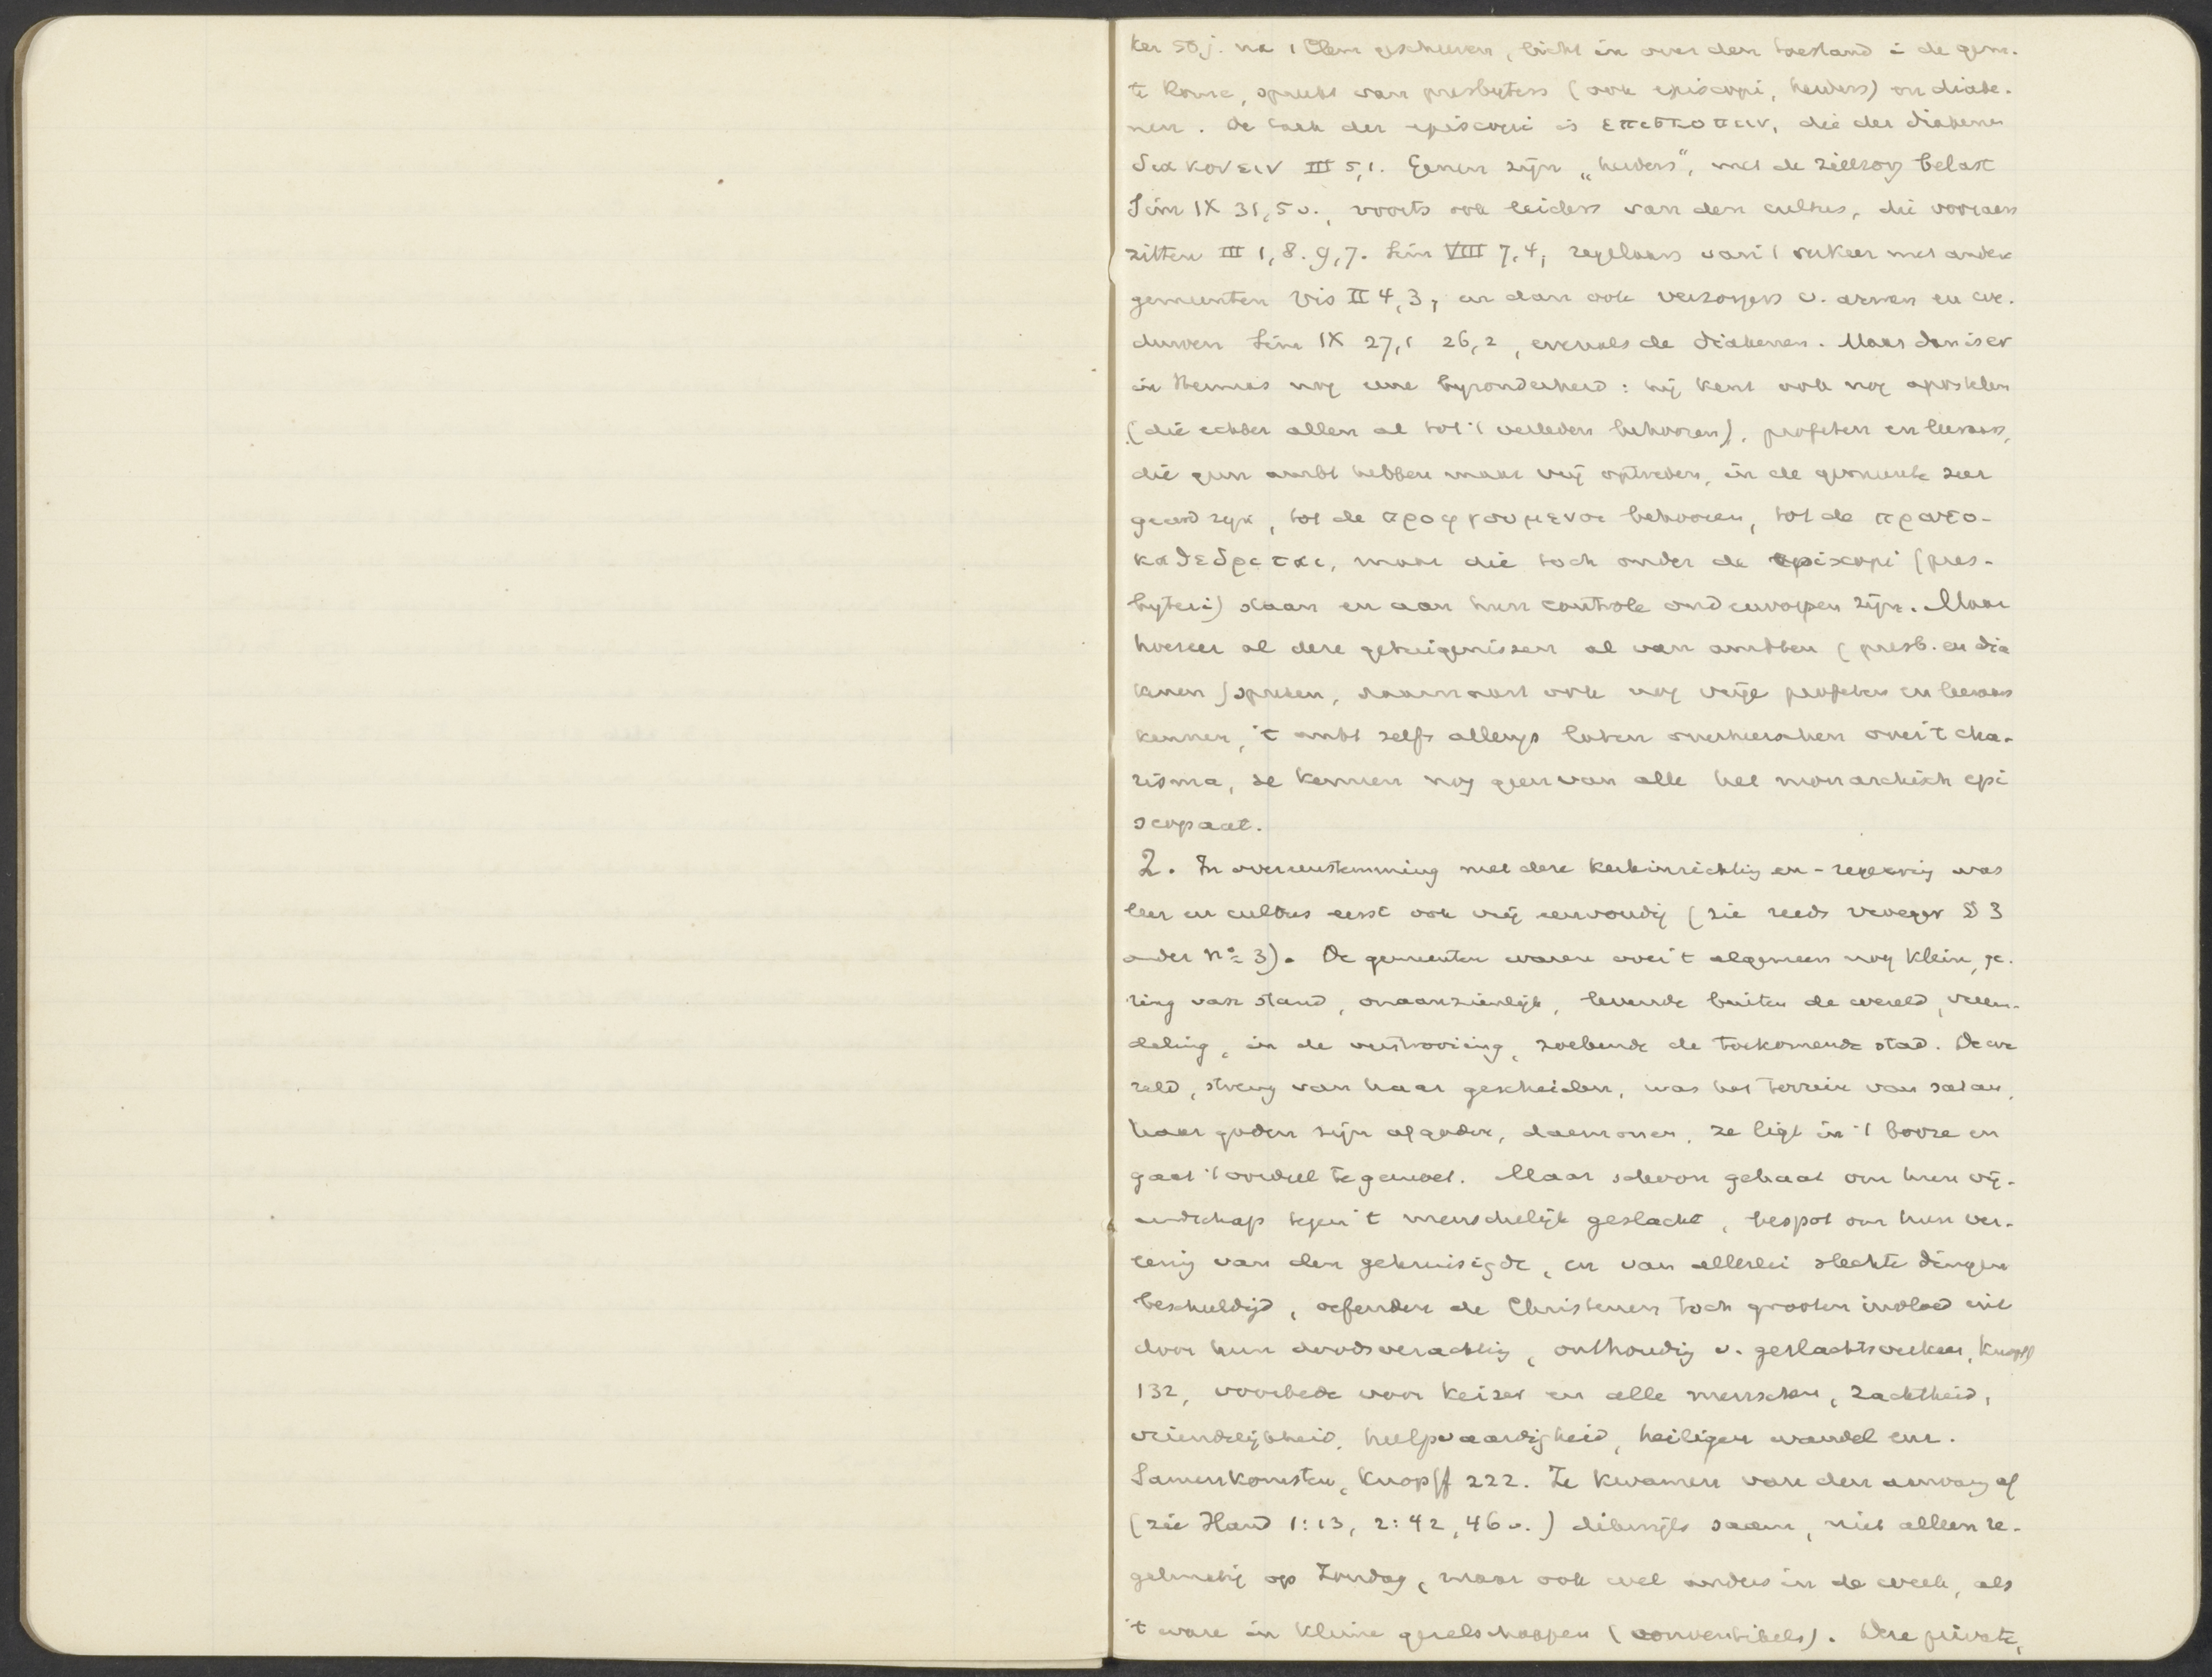 ker 50 j. na 1 Clem geschreven, licht in over den toestand i de gem.
te Rome, spreekt van presbyters (ook episcopi, herders) en diake-
nen. De taak der episcopi is επισκοπειν, die der diakenen
διακονειν III 5,1. Genen zijn „herders", met de zielzorg belast
Sim IX 31, 5 v., voorts ook leiders van den cultus, die vooraan
zitten III 1, 8. 9, 7. Sim VIII 7, 4, regelaars van 't verkeer met andere
gemeenten Vis II 4, 3, en dan ook verzorgers v. armen en we-
duwen Sim IX 27, 1 26, 2, evenals de diakenen. Maar dan is er
in Hermas nog eene byzonderheid: hij kent ook nog apostelen
(die echter allen al tot 't verleden behooren), profeten en leeraars,
die geen ambt hebben maar vrij optreden, in de gemeente zeer
geëerd zijn, tot de προηγουμενοι behooren, tot de πρωτο-
καθεδριται, maar die toch onder de episcopi (pres-
byteri) staan en aan hun controle onderworpen zijn. Maar
hoezeer al deze getuigenissen al van ambten (presb. en dia
kenen) spreken, daarnaast ook nog vrije profeten en leeraars
kennen, 't ambt zelfs allengs laten overheerschen over 't cha-
risma, ze kennen nog geen van alle het monarchisch epi
scopaat.
2. In overeenstemming met deze kerkinrichting en -regeering was
leer en cultus eerst ook vrij eenvoudig (zie reeds vroeger § 3
onder no 3). De gemeenten waren over 't algemeen nog klein, ge-
ring van stand, onaanzienlijk, levende buiten de wereld, vreem-
deling, in de verstrooiing, zoekende de toekomende stad. De we
reld, streng van haar gescheiden, was het terrein van satan,
haar goden zijn afgoden, daemonen, ze ligt in 't booze en
gaat 't oordeel tegemoet. Maar schoon gehaat om hun vij-
andschap tegen 't menschelijk geslacht, bespot om hun ver-
eering van den gekruisigde, en van allerlei slechte dingen
beschuldigd, oefenden de Christenen toch grooten invloed uit
door hun doodsverachting, onthouding v. geslachtsverkeer, Knopff
132, voorbede voor keizer en alle menschen, zachtheid,
vriendelijkheid, hulpvaardigheid, heiligen wandel enz.
Samenkomsten, Knopff 222. Ze kwamen van den aanvang af
(zie Hand 1:13, 2:42, 46 v.) dikwijls saam, niet alleen re-
gelmatig op Zondag, maar ook wel anders in de week, als
't ware in kleine gezelschappen (conventikels). Deze private,